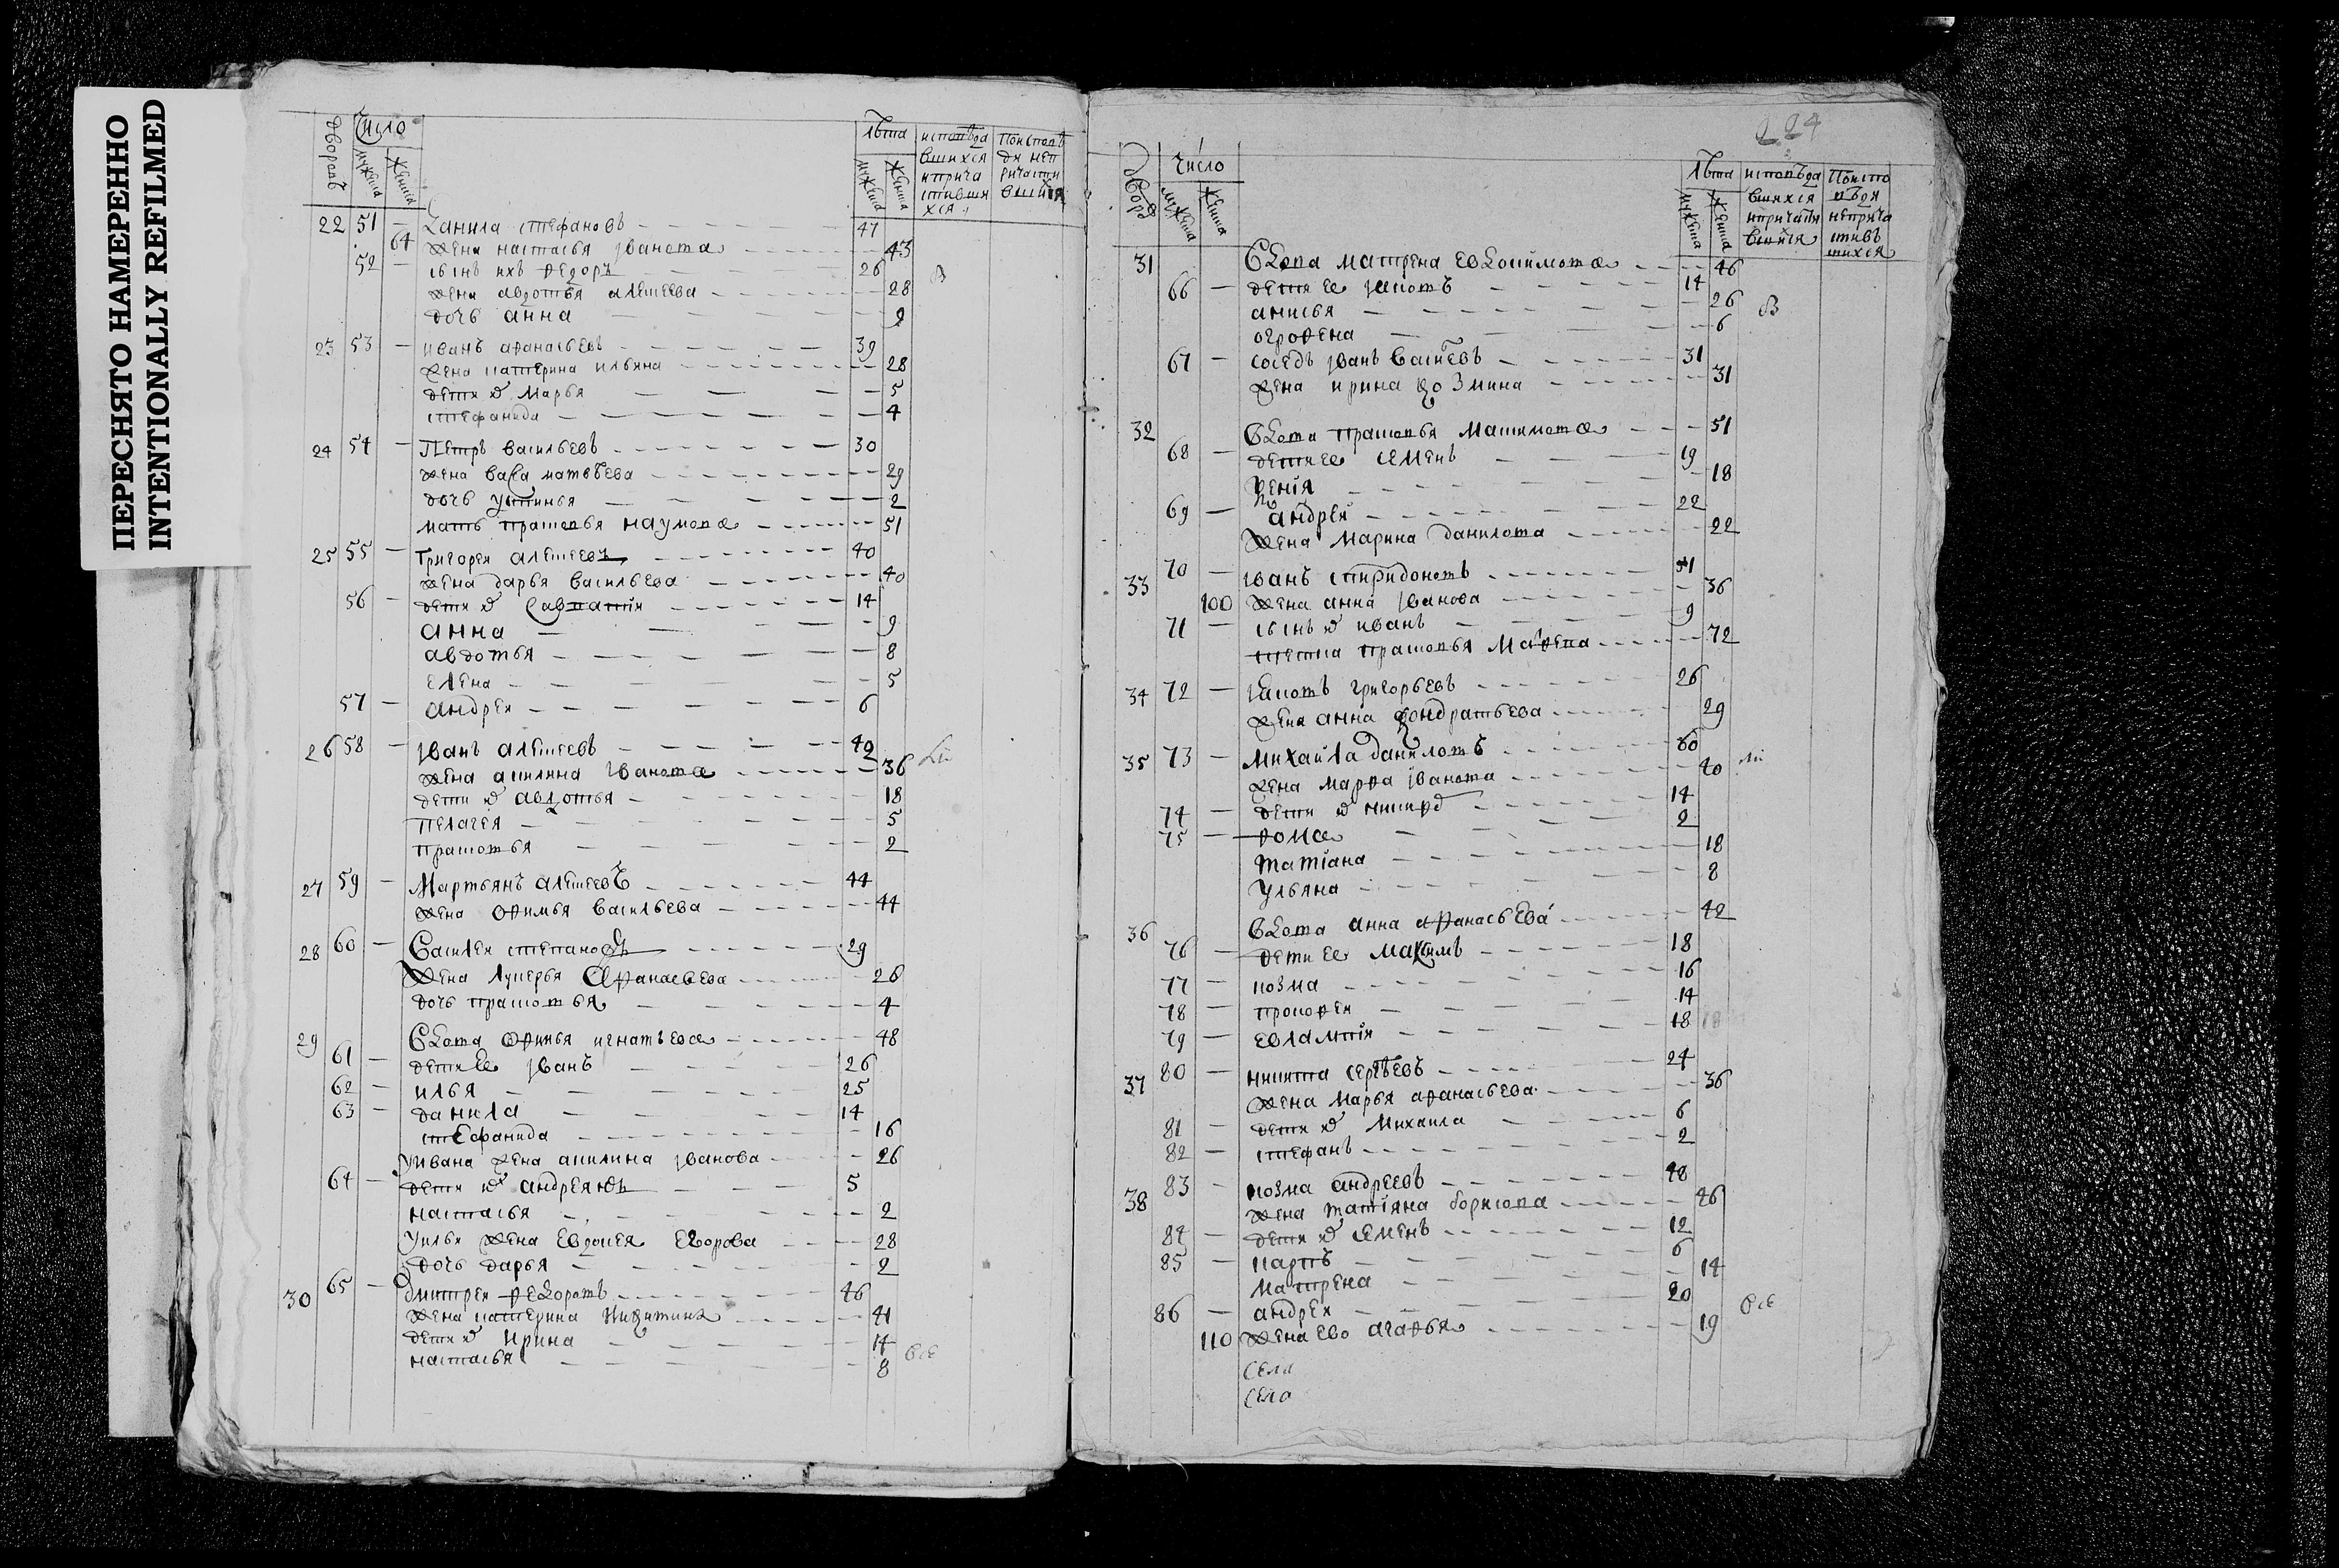 ПЕРЕСНЯТО НАМЕРЕННО
INTENTIONALLY REFILMED
дворовъ Число лѣта исповѣда Поисповѣ
мужеска женска мужеска женска вшихся ди неп
иприча ричасти
стивши вшихся
хся
22 51 — Данила Стефановъ 47
64 жена настасья Іванова 43
52 — сынъ ихъ Ѳедоръ 26
жена авдотья алеѯеева 28
дочь анна 9
23 53 — иванъ аѳанасьевъ 39
жена катерина ильина 28
дети и марья 5
стефанида 4
24 54 — Петръ васильевъ 30
жена васа матвѣева 29
дочь устинья 2
мать прасковья наумова 51
25 55 — Григорей алеѯеевъ 40
жена дарья васильева 40
56 — дети и Савватий 14
анна 9
авдотья 8
елена 5
57 — андрей 6
26 58 — Іванъ алеѯеевъ 42
жена акилина Іванова 36
дети и авдотья 18
пелагея 5
прасковья 2
27 59 — Мартьянъ алеѯеевъ 44
жена Ѳфимья васильева 44
28 60 — Василей степановъ 29
жена лукерья аѳанасьева 28
дочь прасковья 4
29 Вдова Ѳфимья игнатьева 48
61 — дети ее Іванъ 26
62 — илья 25
63 — данила 14
стефанида 16
у ивана жена акилина Іванова 26
64 — дети их андреянъ 5
настасья 2
у ильи жена Евдокея Егорова 28
дочь дарья 2
30 65 — Дмитрей Ѳедоровъ 46
жена катерина Никитина 41
дети и Ирина 14
настасья 8 всѣ
224
Дворъ Число лѣта исповѣда Поиспо
мужеска женска мужеска женска вшихся вѣди
ипричасти неприча
вшихся стивъ
шихся
31 Вдова матрена Евдокимова 46
66 — дети ее Іаковъ 14
анисья 26
огрофена 6
67 — соседъ Іванъ Василевъ 31
жена ирина Козмина 31
32 Вдова прасковья Максимова 51
68 — дети ее семенъ 19
Ѯенія 18
69 — андрей 22
жена марина данилова 22
33 70 — Іванъ спиридоновъ 41
100 жена анна Іванова 36
71 — сынъ и иванъ 9
тетка прасковья Маѳеева 72
34 72 — Іаковъ григорьевъ 26
жена анна кондратьева 29
35 73 — михаила даниловъ 60
жена марѳа Іванова 40
74 — дети и никифоръ 14
75 — Ѳома 2
татіана 18
ульяна 8
36 Вдова анна аѳанасьева 42
76 — дети ее Максимъ 18
77 — козма 16
78 — прокофей 14
79 — евлампій 18
37 80 — никита сергѣевъ 24
жена марья аѳанасьева 36
81 — дети и михаила 6
82 — стефанъ 2
38 83 — козма андреевъ 48
жена татіяна борисова 46
84 — дети и семенъ 12
85 — карпъ 6
матрена 14
86 — андрей 20
110 жена ево агафья 19 всѣ
села
села